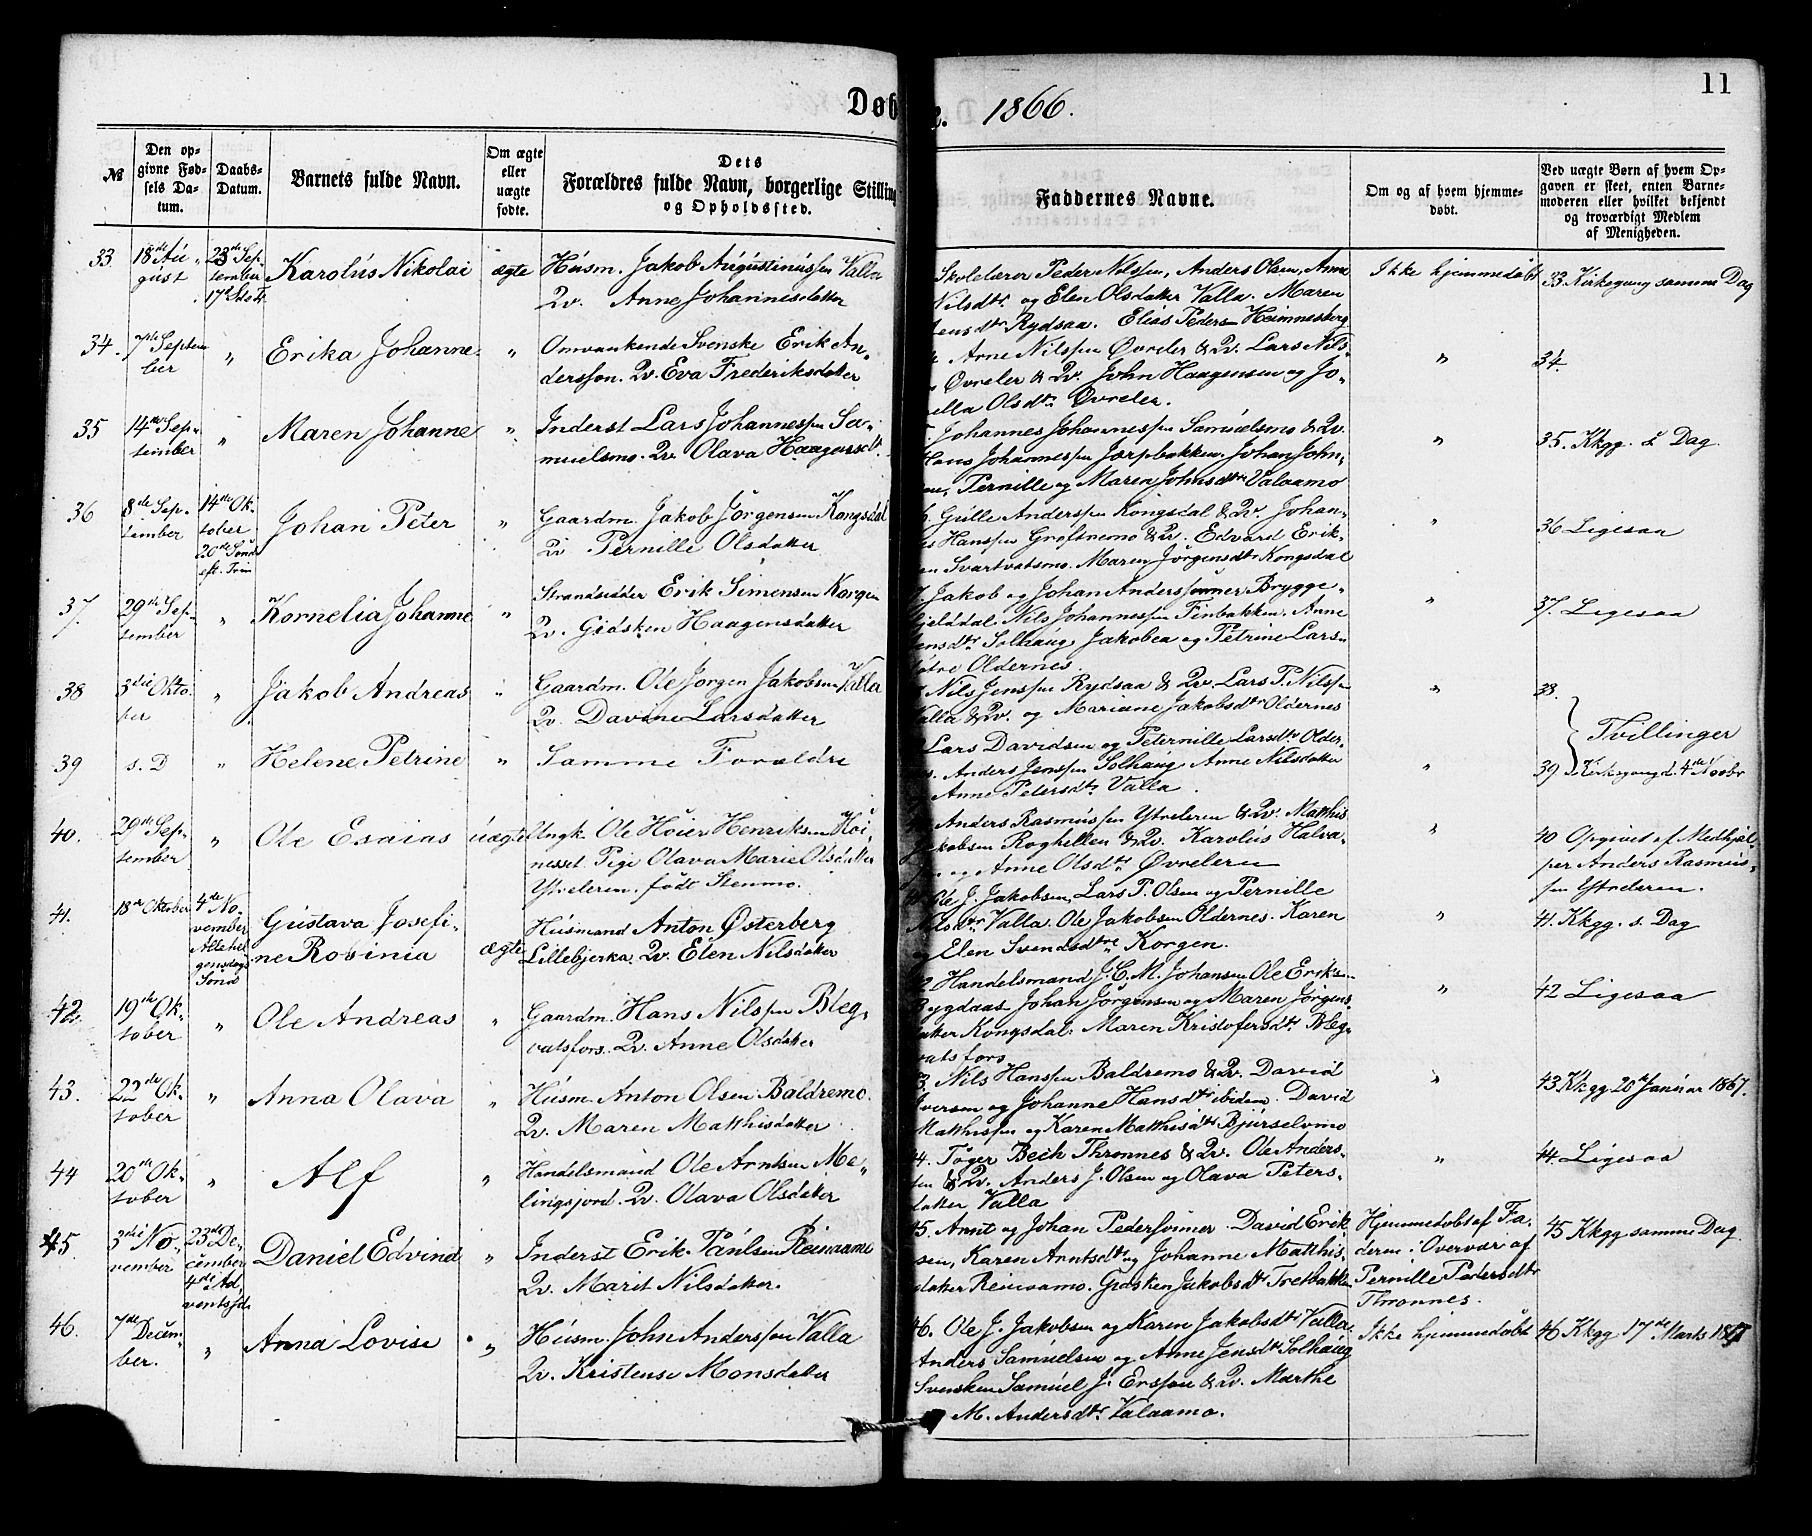 Døb
e. 1866.
11
№
Den op-
givne Fød-
sels Da-
tum.
Daabs-
Datum.
Barnets fulde Navn.
Om ægte
eller
uægte
fødte.
Dets
Forældres fulde Navn, borgerlige Stilling
og Opholdssted.
Faddernes Navne.
Om og af hvem hjemme-
døbt.
Ved uægte Børn af hvem Op-
gaven er skeet, enten Barne-
moderen eller hvilket bekjendt
og troværdigt Medlem
af Menigheden.
33.
18de Au-
gust
23de Sep-
tember
17de S. e. Tr.
Karolus Nikolai
ægte
Husm. Jakob Augustinussen Valla
Qv. Anne Johannesdatter
Skolelærer Peder Nilssen, Anders Olsen, Anne
Nilsdtr og Elen Olsdatter Valla. Maren
Jensdtr Rydsaa. Elias Peders. Hemnesberg
Ikke hjemmedøbt
33 Kirkegang samme Dag
34.
7de Septem
ber
"
Erika Johanne
"
Omvankende Svenske Erik An-
dersson. Qv. Eva Frederiksdatter
Arne Nilssen Øvreler & Qv. Lars Nils-
Øvreler & Qv. John Haagensen og Jo-
ella Olsdtr Øvreler.
"
34.
35
14de Sep-
tember
"
Maren Johanne
"
Inderst Lars Johannessen Sa-
muelsmo. Qv. Olava Haagensdt.
Johannes Johannessen Samuelsmo & Qv.
Hans Johannessen Jærpbakken. Johan John-
en, Pernille og Maren Johnsdtr Valaamo
"
35. Kkgg. s. Dag.
36
8de Sep-
tember
14de Ok-
tober
20de Sønd.
eft. Trin
Johan Peter
"
Gaardm. Jakob Jørgensen Kongsdal
Qv Pernille Olsdatter
Gulle Anderssen Kongsdal & Qv. Johan-
es Hanssen Grøftremo & Qv. Edvard Erik-
en Svartvatsmo. Maren Jørgensdtr Kongsdal
"
36 Ligesaa
37.
29de Sep-
tember
"
Kornelia Johanne
"
Strandsidder Erik Simensen Korgen
Qv. Gidsken Haagensdatter
Jakob og Johan Anderssønner Brygge-
fjelddal. Nils Johannessen Finbakken. Anne
Jensdtr Solhaug, Jakobea og Petrine Lars-
døtre Oldernes.
"
37. Ligesaa
38
3die Okto-
ber
"
Jakob Andreas
"
Gaardm. Ole Jørgen Jakobsen Valla
Qv. Davine Larsdatter
Nils Jenssen Rydsaa & Qv. Lars P. Nilssen
Valla & Qv. og Mariane Jakobsdtr Oldernes
"
38.
Tvillinger
39
s. D
"
Helene Petrine
"
Samme Forældre
Lars Davidsen og Peternille Larsdtr Older-
s. Anders Jenssen Solhaug, Anne Nilsdatter
Anne Petersdtr Valla.
"
39 Kirkegang d. 4de Novbr
40.
29de Sep-
tember
"
Ole Esaias
uægte
Ungk. Ole Høier Henriksen Høi-
nesset. Pige Olava Marie Olsdatter
Ytreleren. født Stenmo.
Anders Rasmussen Ytreleren & Qv. Matthis
Jakobsen Roghellen & Qv. Karolus Halva-
og Anne Olsdtr Øvreleren
"
40 Opgivet af Medhjæl-
per Anders Rasmus-
sen Ytreleren.
41.
18de Oktober
4de No-
vember
Allehel-
gensdags
Sønd
Gustava Josefi-
ne Robinia
ægte
Husmand Anton Østerberg
Lillebjerka. Qv. Elen Nilsdatter
Ole J. Jakobsen, Lars P. Olsen og Pernille
Nilsdtr Valla. Ole Jakobsen Oldernes. Karen
og Elen Svendsdtre Korgen.
"
41. Kkgg. s. Dag
42.
19de Ok-
tober
"
Ole Andreas
"
Gaardm. Hans Nilssen Bleg-
vatsfors. Qv. Anne Olsdatter
2 Handelsmand J. C. M. Johansen Ole Eriks.
Bygdaas Johan Jørgensen og Maren Jørgens-
datter Kongsdal. Maren Kristofersdtr Bleg-
vatsfors
"
42 Ligesaa
43.
22de Ok-
tober
"
Anna Olava
"
Husm. Anton Olsen Baldremo.
Qv. Maren Matthisdatter
3. Nils Hanssen Baldremo & Qv. David
Iversen og Johanne Hansdtr ibidem. David
Matthissen og Karen Matthisdtr Bjurselvmo
"
43 Kkgg 20de Januar 1867.
44
20de Ok-
tober
"
Alf
"
Handelsmand Ole Arntsen Me-
lingsjord. Qv. Olava Olsdatter
44. Tøger Bech Thronnes & Qv. Ole Anders-
sen & Qv. Anders J. Olsen og Olava Peters-
datter Valla
"
44. Ligesaa
45.
3die No-
vember
23de De-
cember
4de Ad-
ventssd.
Daniel Edvind
"
Inderst Erik Paulsen Reinaamo
Qv. Marit Nilsdatter.
45. Arnt og Johan Pedersønner. David Erik-
sen, Karen Arntsdtr og Johanne Matthis-
datter Reinaamo. Gidsken Jakobsdtr Tretbakken
Hjemmedøbt af Fa-
deren i Overvær af
Pernille Pedersdtr
Thronnes.
45 Kkgg samme Dag.
46.
7de Decem-
ber.
"
Anna Lovise
"
Husm. John Anderssøn Valla
Qv. Kristense Monsdatter
46. Ole J. Jakobsen og Karen Jakobsdtr Valla.
Anders Samuelsen og Anne Jensdtr Solhaug
Svensken Samuel J. Ersson & Qv. Marthe
M. Andersdtr Valaamo.
Ikke hjemmedøbt
46 Kkgg 17de Marts 1867